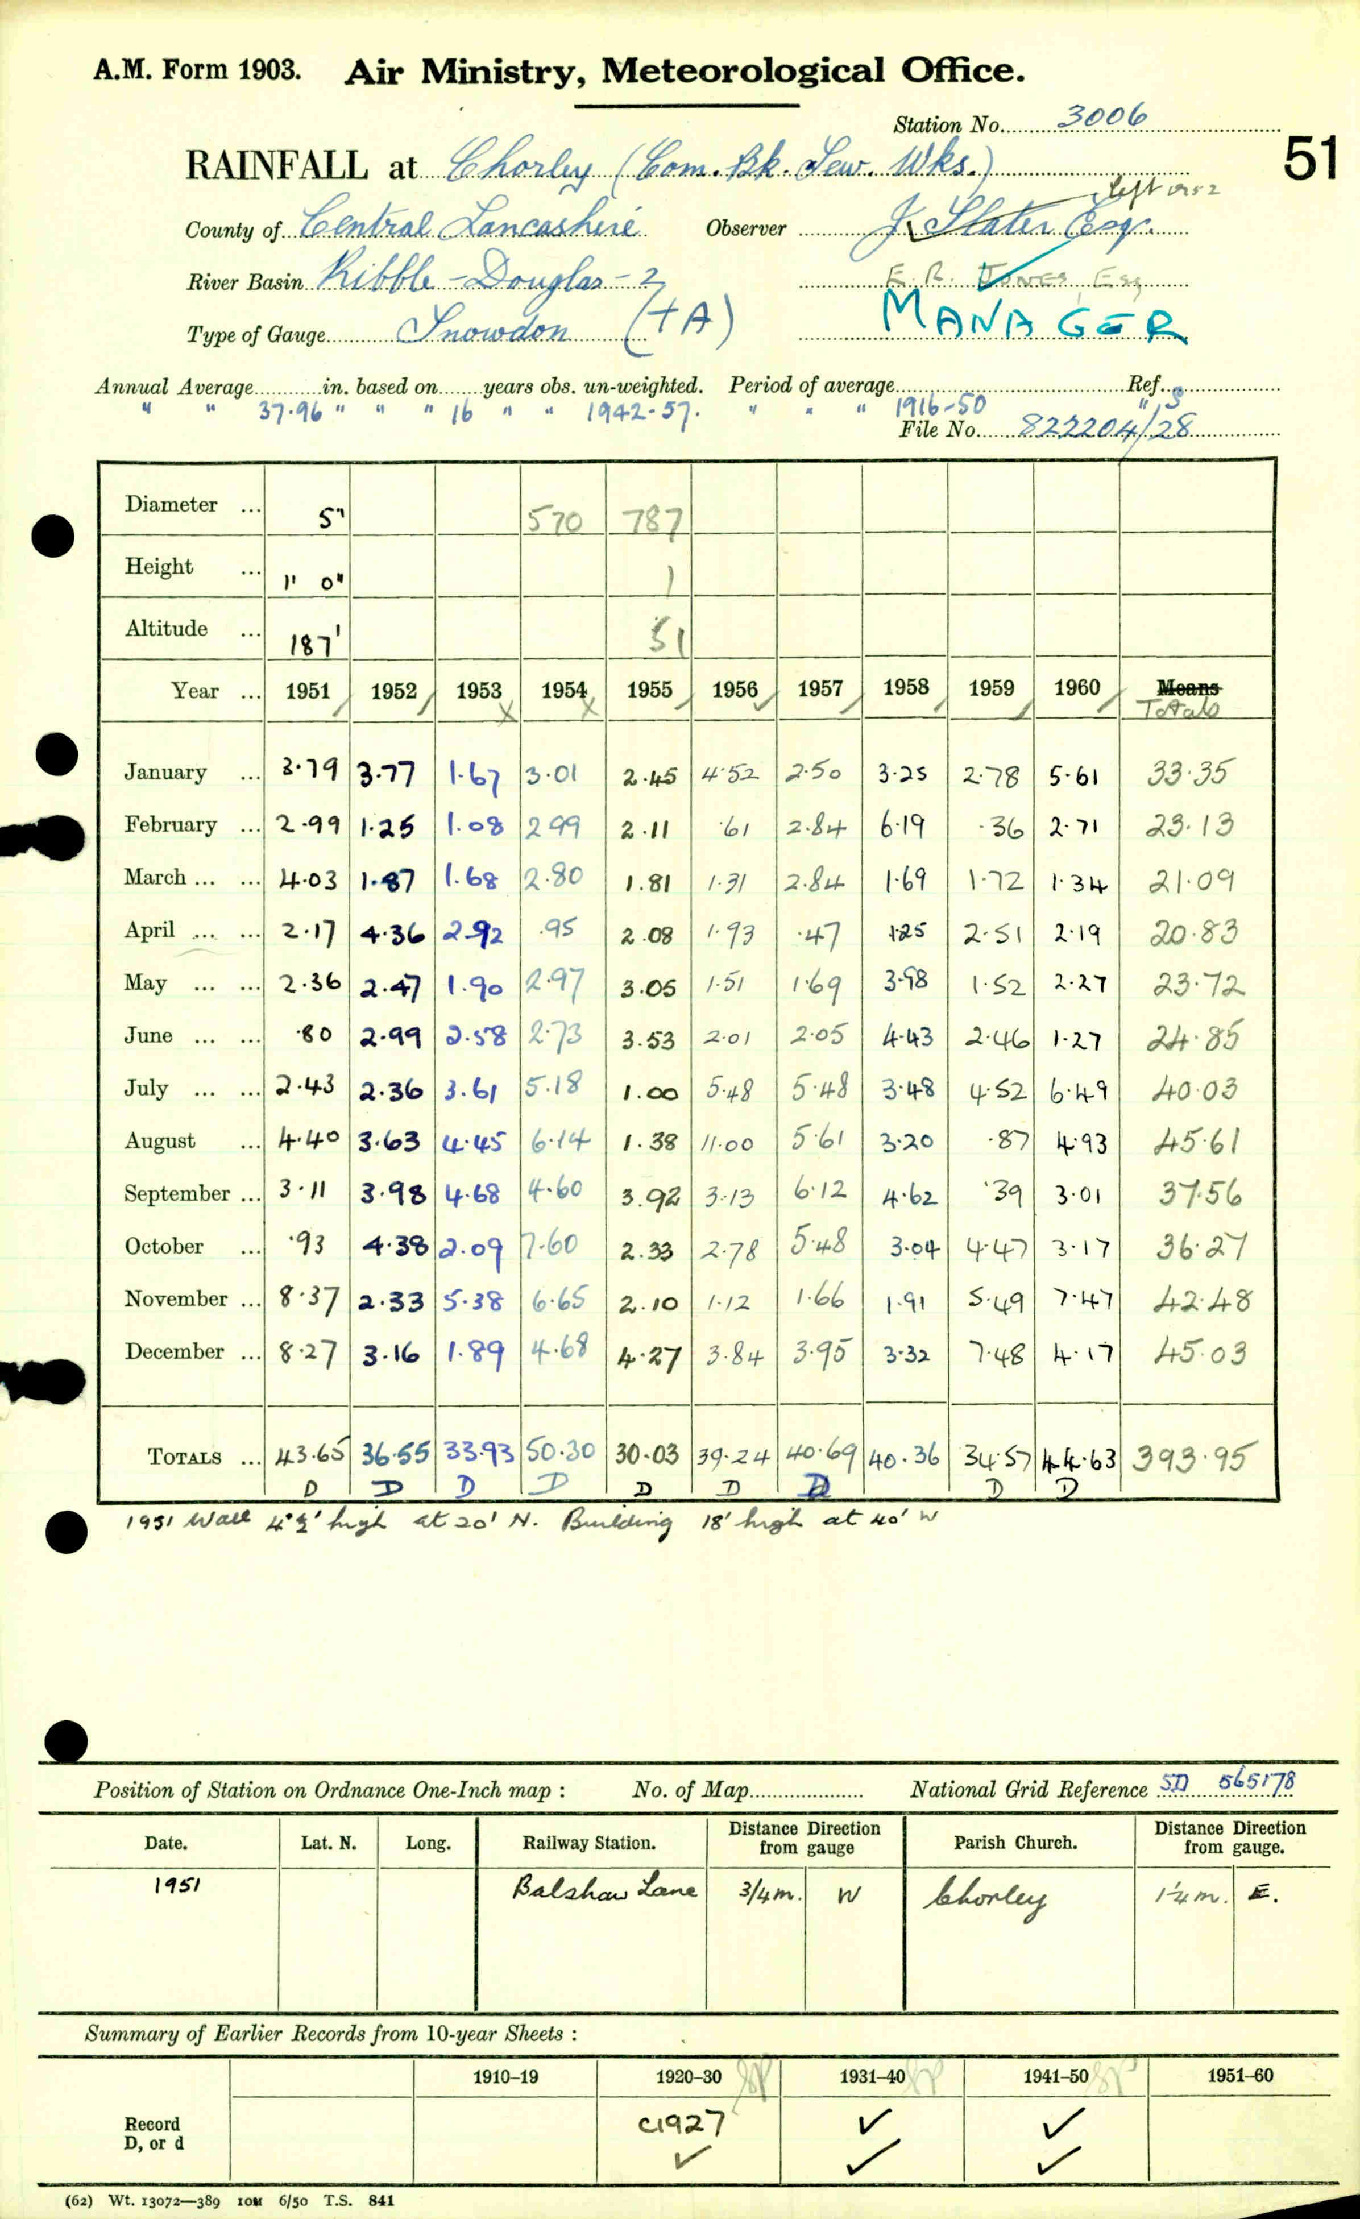 A.M. Form 1903. Air Ministry, Meteorological Office.
Station No. 3006
51
RAINFALL at Chorley (Com. Bk. Sew. Wks.)
left 1952
County of Central Lancashire Observer J. Slater Esq.
River Basin Ribble - Douglas - 2 E. R. JONES, Esq
Type of Gauge Snowdon (+A) MANAGER
Annual Average in. based on years obs. un-weighted. Period of average Ref. S
" " 37.96 " " " 16 " " 1942-57. " " " 1916-50 "
File No. 822204/28
Diameter ... 5" 570 787
Height ... 1' 0" 1
Altitude ... 187' 51
Year ... 1951 / 1952 / 1953 X 1954 X 1955 / 1956 ✓ 1957 / 1958 / 1959 / 1960 / Means
Totals
January ... 3.79 3.77 1.67 3.01 2.45 4.52 2.50 3.25 2.78 5.61 33.35
February ... 2.99 1.25 1.08 2.99 2.11 .61 2.84 6.19 .36 2.71 23.13
March ... ... 4.03 1.87 1.68 2.80 1.81 1.31 2.84 1.69 1.72 1.34 21.09
April ... ... 2.17 4.36 2.92 .95 2.08 1.93 .47 1.25 2.51 2.19 20.83
May ... ... 2.36 2.47 1.90 2.97 3.05 1.51 1.69 3.98 1.52 2.27 23.72
June ... ... .80 2.99 2.58 2.73 3.53 2.01 2.05 4.43 2.46 1.27 24.85
July ... ... 2.43 2.36 3.61 5.18 1.00 5.48 5.48 3.48 4.52 6.49 40.03
August ... 4.40 3.63 4.45 6.14 1.38 11.00 5.61 3.20 .87 4.93 45.61
September ... 3.11 3.98 4.68 4.60 3.92 3.13 6.12 4.62 .39 3.01 37.56
October ... .93 4.38 2.09 7.60 2.33 2.78 5.48 3.04 4.47 3.17 36.27
November ... 8.37 2.33 5.38 6.65 2.10 1.12 1.66 1.91 5.49 7.47 42.48
December ... 8.27 3.16 1.89 4.68 4.27 3.84 3.95 3.32 7.48 4.17 45.03
TOTALS ... 43.65 36.55 33.93 50.30 30.03 39.24 40.69 40.36 34.57 44.63 393.95
D D D D D D D D D
1951 Wall 4'2½' high at 20' N. Building 18' high at 40' W
Position of Station on Ordnance One-Inch map : No. of Map National Grid Reference SD 565178
Date. Lat. N. Long. Railway Station. Distance Direction from gauge Parish Church. Distance Direction from gauge.
1951 Balshaw Lane 3/4 m. W Chorley 1¼ m. E.
Summary of Earlier Records from 10-year Sheets :
1910–19 1920–30 1931–40 1941–50 1951–60
Record C1927 ✓ ✓
D, or d ✓ ✓ ✓
(62) Wt. 13072—389 10M 6/50 T.S. 841